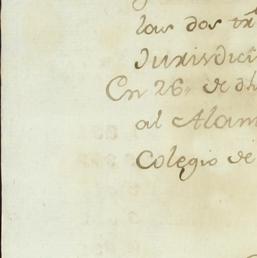 las dos
Jurisdicii
En 26, de dh
al Alam
Colegio de